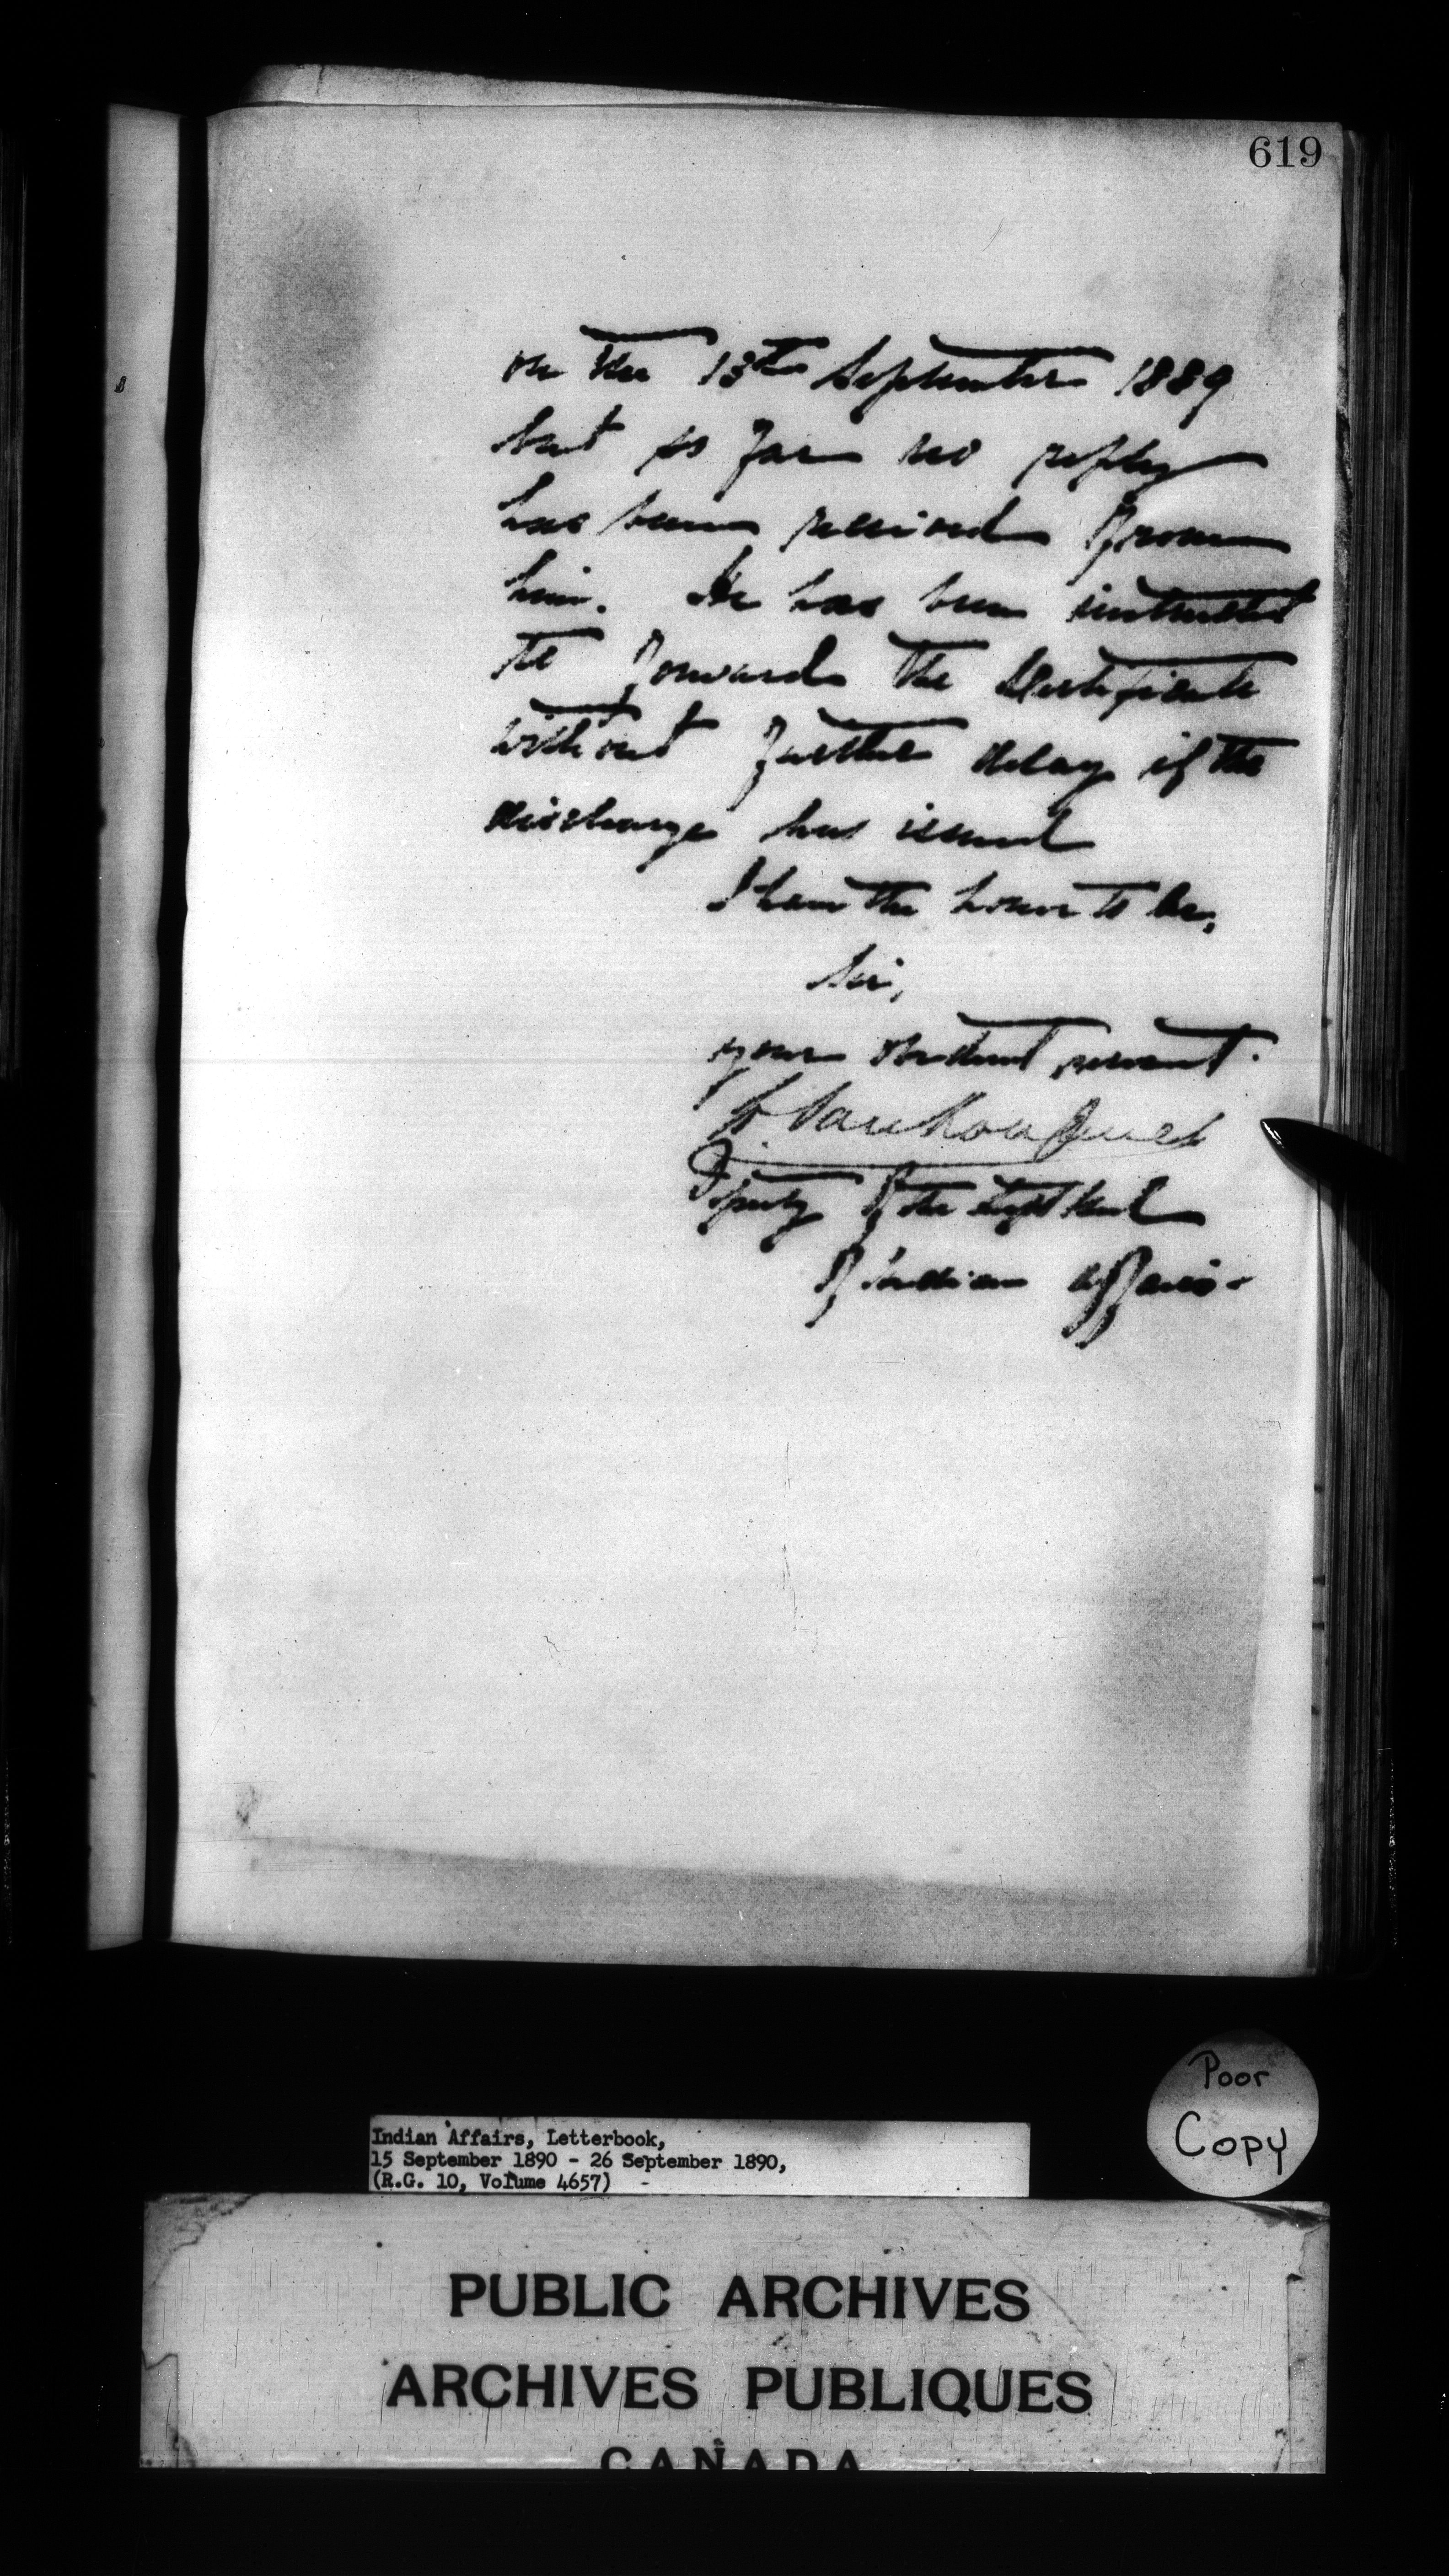 619
on the 13th September 1889
but so far no reply
has been received from
him. He has been instructed
to forward the Certificate
without further delay if the
discharge has issued
I have the honor to be,
Sir,
your obedient servant.
L. Vankoughnet
Deputy of the Supt Genl
of Indian Affairs.
Poor
Copy
Indian Affairs, Letterbook,
15 September 1890 - 26 September 1890,
(R.G. 10, Volume 4657) -
PUBLIC ARCHIVES
ARCHIVES PUBLIQUES
CANADA